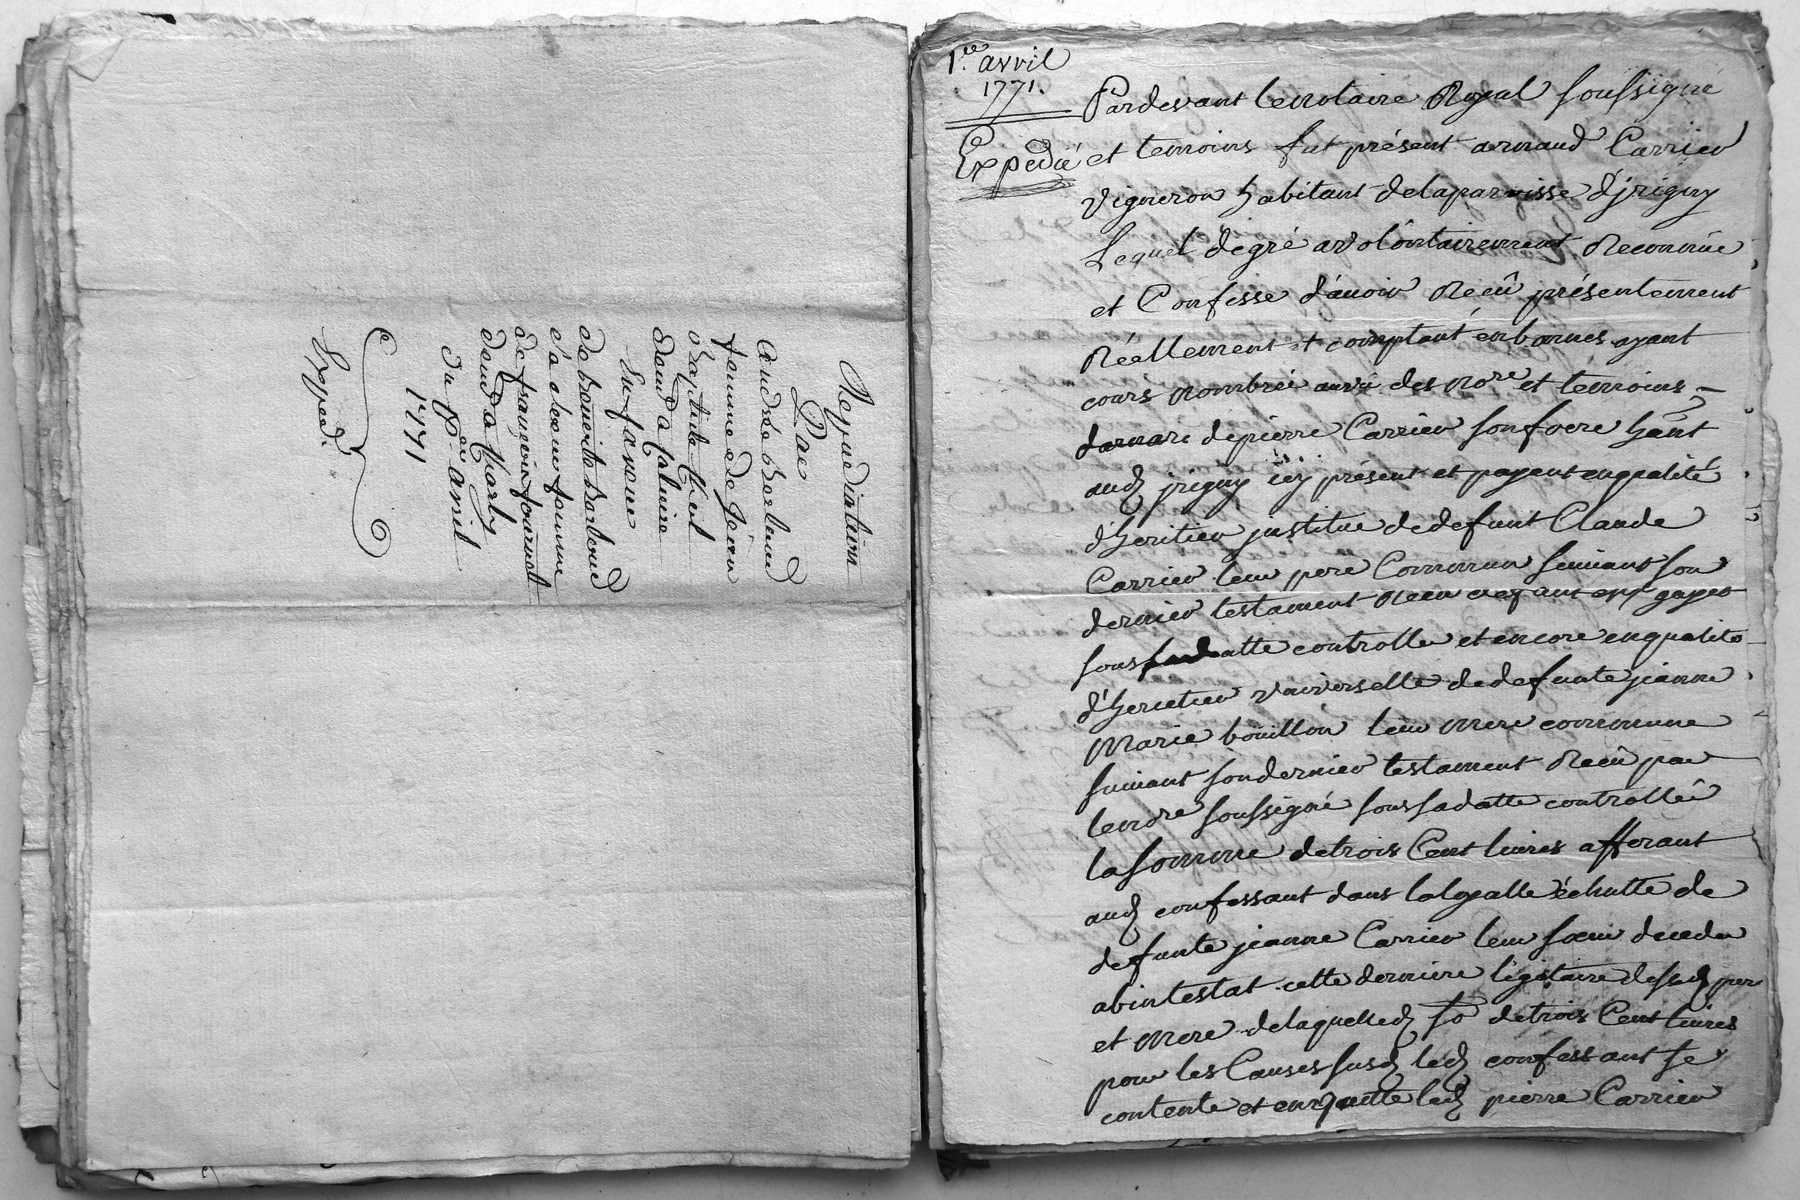 Par
andrée
femme de Jean
baptiste
dem.t a Caluire
En faveur
de
femme
de françois fournat
dem.t a
du p.er avril
1771
Exped.
1.er avril
1771.
Expedié
Pardevant lenotaire Royal soussigné
et temoins fut présent armand Carrier
vigneron habitant delaparoisse d'jrigny
Lequel degré a volôntairement Reconnûe
et Confesse d'avoir Recû présentement
Réellement et comptant enbonnes ayant
cours nombrée auvû des no.re et temoins
depierre Carrier son frere hânt
aud jrigny icy présent et payant enqualité
d'heritier jnstitue dedefunt Claude
Carrier leur pere Commun suivant son
dernier testament Recu
sous sadatte controllé et encore enqualité
d'heritier vniverselle dedefunte jeanne
Marie bouillon leur mere commune
suivant sondernier testament Recû par
lenore soussigné sous sadatte controllée
la somme detrois Cent livres afferant
aud confessant dans lalegalle échutte de
defunte jeanne Carrier leur sœur decedee
abintestat cette derniere légataire desd per
et mere delaquelled so detrois Cent livres
pour les Causes susd led confessant se
contente et enquitte led pierre Carrier